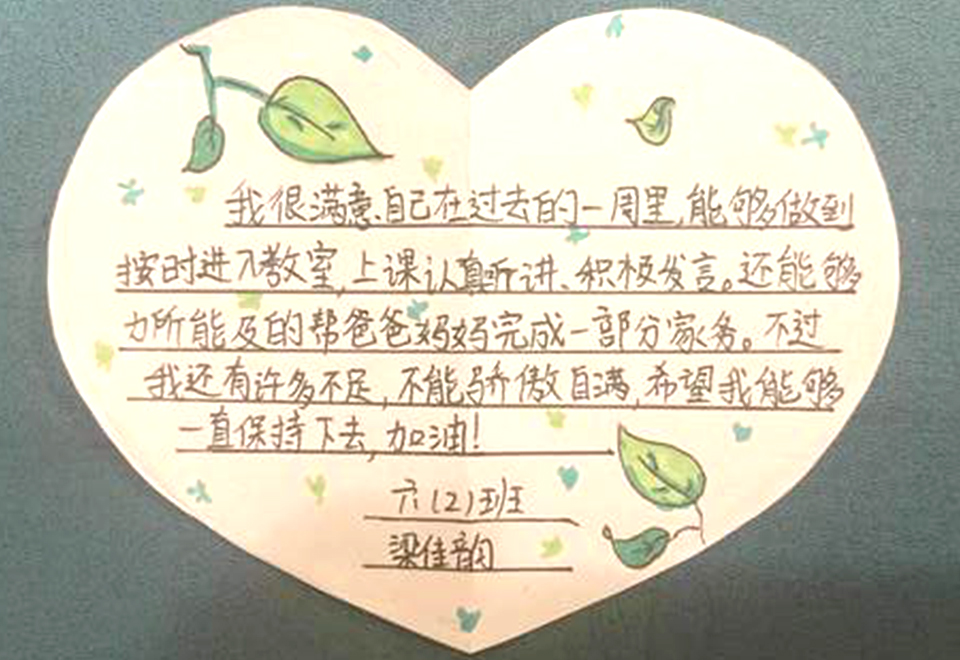 我很满意自己在过去的一周里,能够做到
按时进入教室,上课认真听讲、积极发言。还能够
力所能及的帮爸爸妈妈完成一部分家务。不过
我还有许多不足,不能骄傲自满,希望我能够
一直保持下去,加油!
六(2)班
梁佳韵